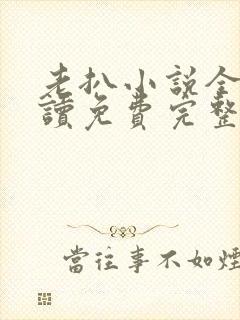 老扒小说全
讀免費完整
當往事不如煙